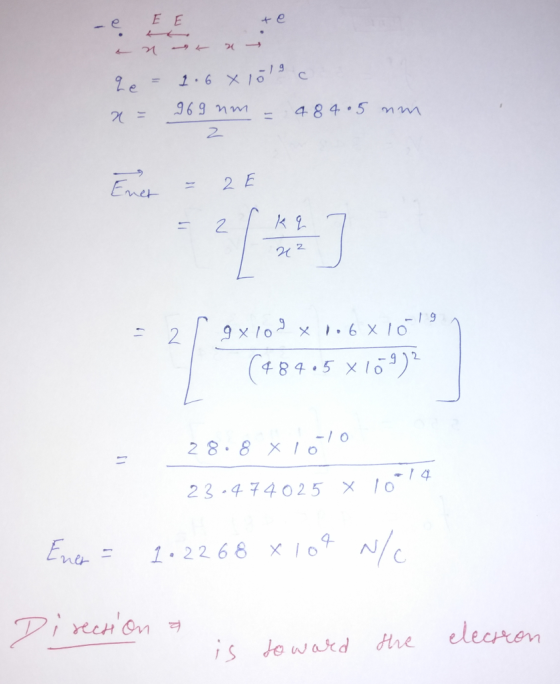 -e E E +e
x x
qe = 1.6 × 10⁻¹⁹ C
x = 969 nm / 2 = 484.5 nm
Enet = 2 E
= 2 [ kq / x² ]
= 2 [ 9×10⁹ × 1.6 × 10⁻¹⁹ / (484.5 × 10⁻⁹)² ]
= 28.8 × 10⁻¹⁰ / 23.474025 × 10⁻¹⁴
Enet = 1.2268 × 10⁴ N/C
Direction ⇒ is toward the electron